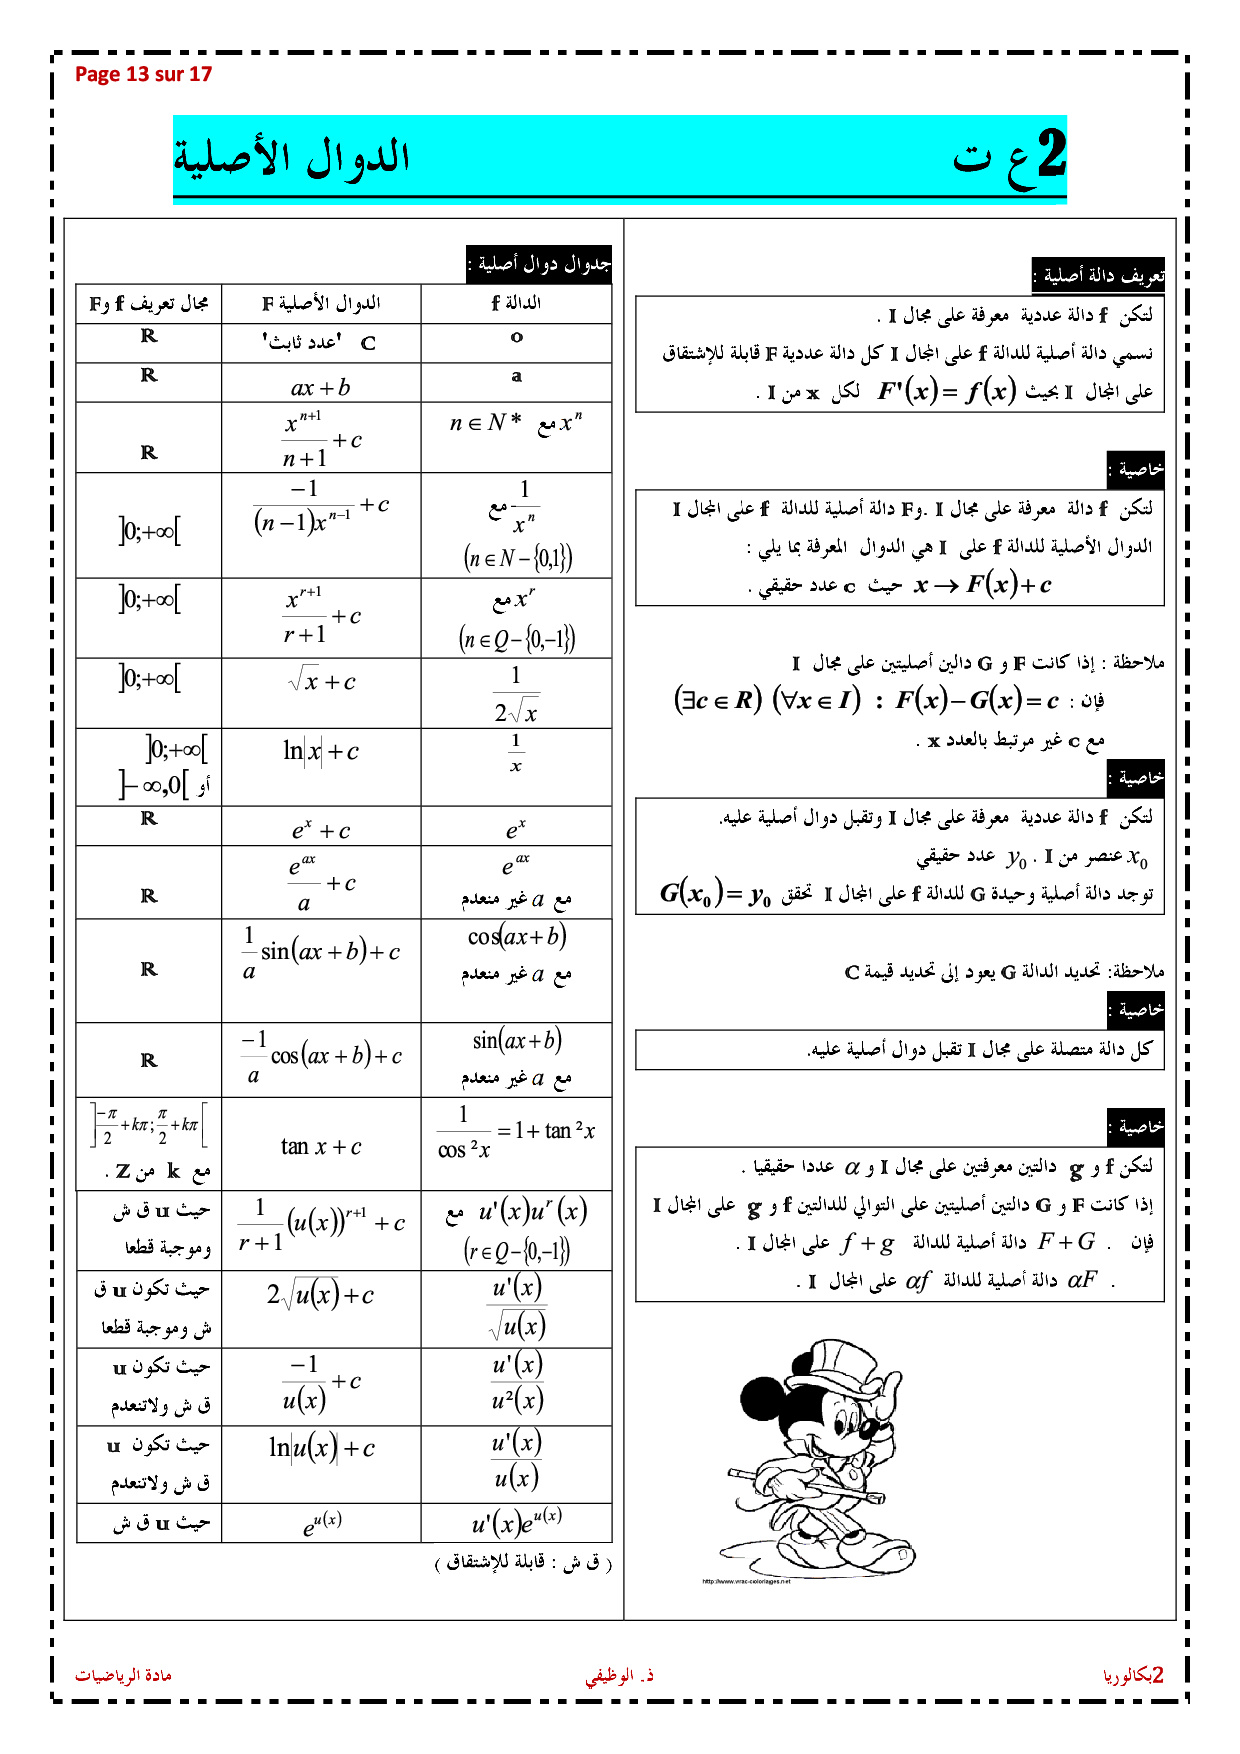 Page 13 sur 17
2ع ت الدوال الأصلية
تعريف دالة أصلية :
لتكن f دالة عددية معرفة على مجال I .
نسمي دالة أصلية للدالة f على المجال I كل دالة عددية F قابلة للإشتقاق
على المجال I بحيث F'(x) = f(x) لكل x من I .
خاصية :
لتكن f دالة معرفة على مجال I .وF دالة أصلية للدالة f على المجال I
الدوال الأصلية للدالة f على I هي الدوال المعرفة بما يلي :
x → F(x)+c حيث c عدد حقيقي .
ملاحظة : إذا كانت F و G دالين أصليتين على مجال I
فإن : (∃c ∈ R) (∀x ∈ I) : F(x) − G(x) = c
مع c غير مرتبط بالعدد x .
خاصية :
لتكن f دالة عددية معرفة على مجال I وتقبل دوال أصلية عليه.
x₀ عنصر من I . y₀ عدد حقيقي
توجد دالة أصلية وحيدة G للدالة f على المجال I تحقق G(x₀) = y₀
ملاحظة: تحديد الدالة G يعود إلى تحديد قيمة C
خاصية :
كل دالة متصلة على مجال I تقبل دوال أصلية عليه.
خاصية :
لتكن f و g دالتين معرفتين على مجال I و α عددا حقيقيا .
إذا كانت F و G دالتين أصليتين على التوالي للدالتين f و g على المجال I
فإن . F + G دالة أصلية للدالة f + g على المجال I .
. αF دالة أصلية للدالة αf على المجال I .
http://www.vrac-coloriages.net
جدوال دوال أصلية :
الدالة f الدوال الأصلية F مجال تعريف f وF
o C 'عدد ثابت' ℝ
a ax + b ℝ
xⁿ مع n ∈ N* x^(n+1)/(n+1) + c ℝ
1/xⁿ مع −1/((n−1)x^(n−1)) + c ]0;+∞[
(n ∈ N − {0,1})
x^r مع x^(r+1)/(r+1) + c ]0;+∞[
(n ∈ Q − {0,−1})
1/(2√x) √x + c ]0;+∞[
1/x ln|x| + c ]0;+∞[
أو ]−∞,0[
e^x e^x + c ℝ
e^(ax) e^(ax)/a + c ℝ
مع a غير منعدم
cos(ax + b) (1/a) sin(ax + b) + c ℝ
مع a غير منعدم
sin(ax + b) (−1/a) cos(ax + b) + c ℝ
مع a غير منعدم
1/cos²x = 1 + tan²x tan x + c ]−π/2 + kπ ; π/2 + kπ[
مع k من Z .
u'(x)u^r(x) مع 1/(r+1) (u(x))^(r+1) + c حيث u ق ش
(r ∈ Q − {0,−1}) وموجبة قطعا
u'(x)/√u(x) 2√u(x) + c حيث تكون u ق
ش وموجبة قطعا
u'(x)/u²(x) −1/u(x) + c حيث تكون u
ق ش ولاتنعدم
u'(x)/u(x) ln|u(x)| + c حيث تكون u
ق ش ولاتنعدم
u'(x)e^(u(x)) e^(u(x)) حيث u ق ش
( ق ش : قابلة للإشتقاق )
2بكالوريا ذ. الوظيفي مادة الرياضيات